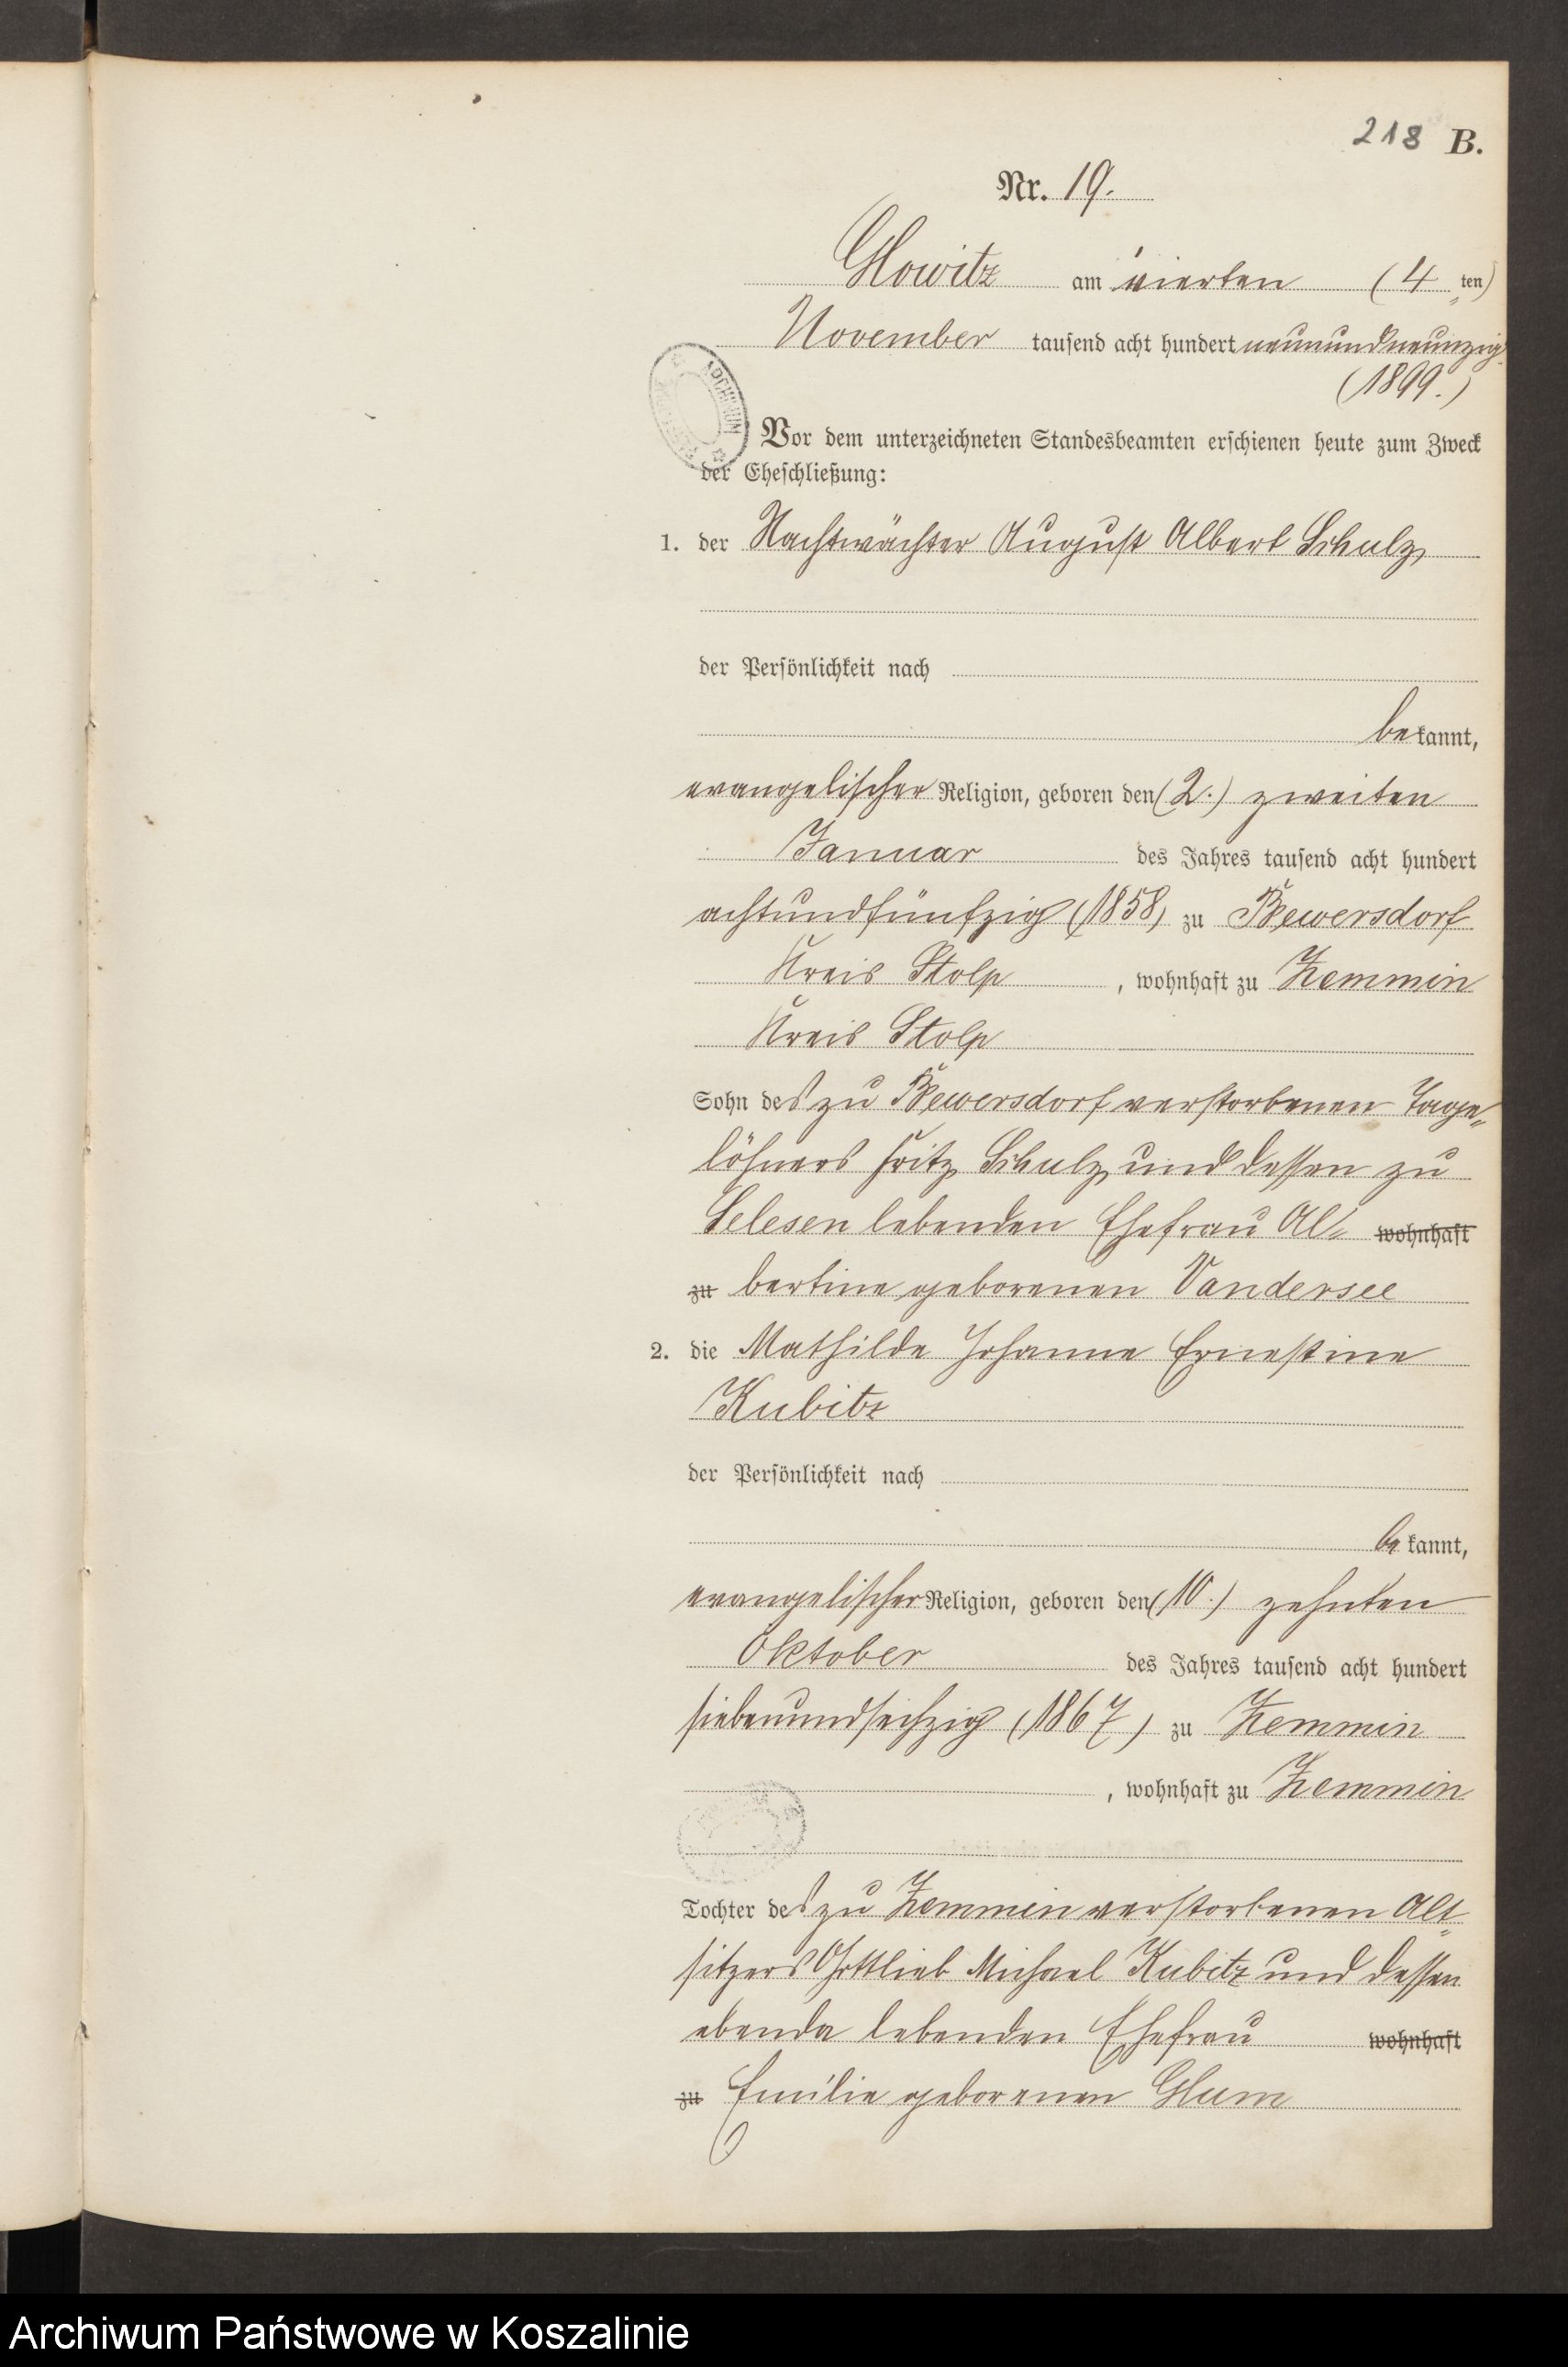 218 B.
Nr. 19.
Glowitz am vierten (4ten)
November tausend acht hundert neunundneunzig
(1899.)
ARCHIWUM
Vor dem unterzeichneten Standesbeamten erschienen heute zum Zweck
der Eheschließung:
1. der Nachtwächter August Albert Schulz
der Persönlichkeit nach
bekannt,
evangelischer Religion, geboren den (2.) zweiten
Januar des Jahres tausend acht hundert
achtundfünfzig (1858) zu Bewersdorf
Kreis Stolp, wohnhaft zu Zemmin
Kreis Stolp
Sohn des zu Bewersdorf verstorbenen Tage-
löhners Fritz Schulz und dessen zu
Selesen lebenden Ehefrau Al- wohnhaft
zu bertine geborenen Vandersee
2. die Mathilde Johanne Ernestine
Kubitz
der Persönlichkeit nach
bekannt,
evangelischer Religion, geboren den (10.) zehnten
Oktober des Jahres tausend acht hundert
siebenundsechzig (1867) zu Zemmin
, wohnhaft zu Zemmin
Tochter des zu Zemmin verstorbenen Alt-
sitzers Gottlieb Michael Kubitz und dessen
ebenda lebenden Ehefrau wohnhaft
zu Emilie geborenen Glum
Archiwum Państwowe w Koszalinie